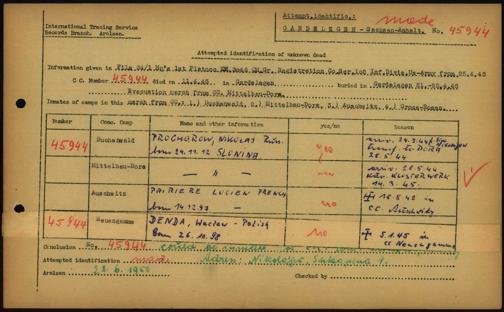 International Tracing Service
Records Branch. Arolsen.
Attempt.identific.: made
GARDELEGEN - Sachsen-Anhalt. No. 45944
Attempted identification of unknown dead
Information given in File 54/1 Hq's 1st Platoon Gr. Registration Co. Inf.Divis.Us-Army from 25.4.45
C C. Number 45944 died on 13.4.45 in Gardelegen buried in Gardelegen 21.-25.4.45
Evacuation march from CC. Mittelbau-Dora.
Inmates of camps in this march from CC. 1.) Buchenwald, 2.) Mittelbau-Dora, 3.) Auschwitz, 4.) Gross-Rosen.
Number Conc. Camp Name and other information yes/no Reason
45944 Buchenwald PROCHOROW, NIKOLAI Russ.
born 24.12.12 SLONINA yes
transf. to DORA
28.5.44
Mittelbau-Dora — " — no arriv. 28.5.44
Kdo. KLOSTERWERK
14.3.45.
Auschwitz PAIRIERE LUCIEN FRENCH
born 14.12.93 no 18.5.42 in
CC Auschwitz
45944 Neuengamme DENDA, Wacław - Polish
born 26.10.98 no 5.1.45 in
CC Neuengamme
Conclusion No. 45944
Attempted identification made. Adren: Nikolajo,
Arolsen 28.6.1950 Checked by